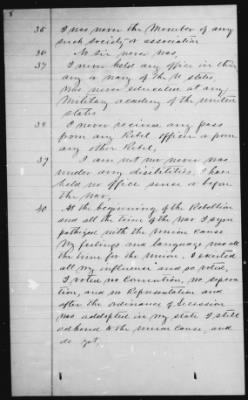 8
35 I was never the Member of any
such society or association
36 No Sir never was,
37 I never held any office in the
army or navy of the U States.
Was never educated at any
Military academy of the united
states
38 I never received any pass
from any Rebel officer or from
any other Rebel,
39 I am not nor never was
under any disibilities, I have
held no office since or before
the War,
40 At the beginning of the Rebellion
and all the time of the war I sym
pathized with the Union cause
My feelings and language was all
the time for the Union. I exerted
all my influence and so voted,
I voted no Convention, no sepera
tion, and no Representation and
after the ordinance of Secession
was addopted in my state I still
adhered to the Union cause, and
do yet.